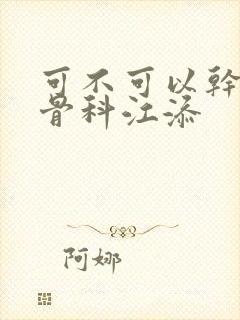 可不可以幹
骨科江添
阿娜